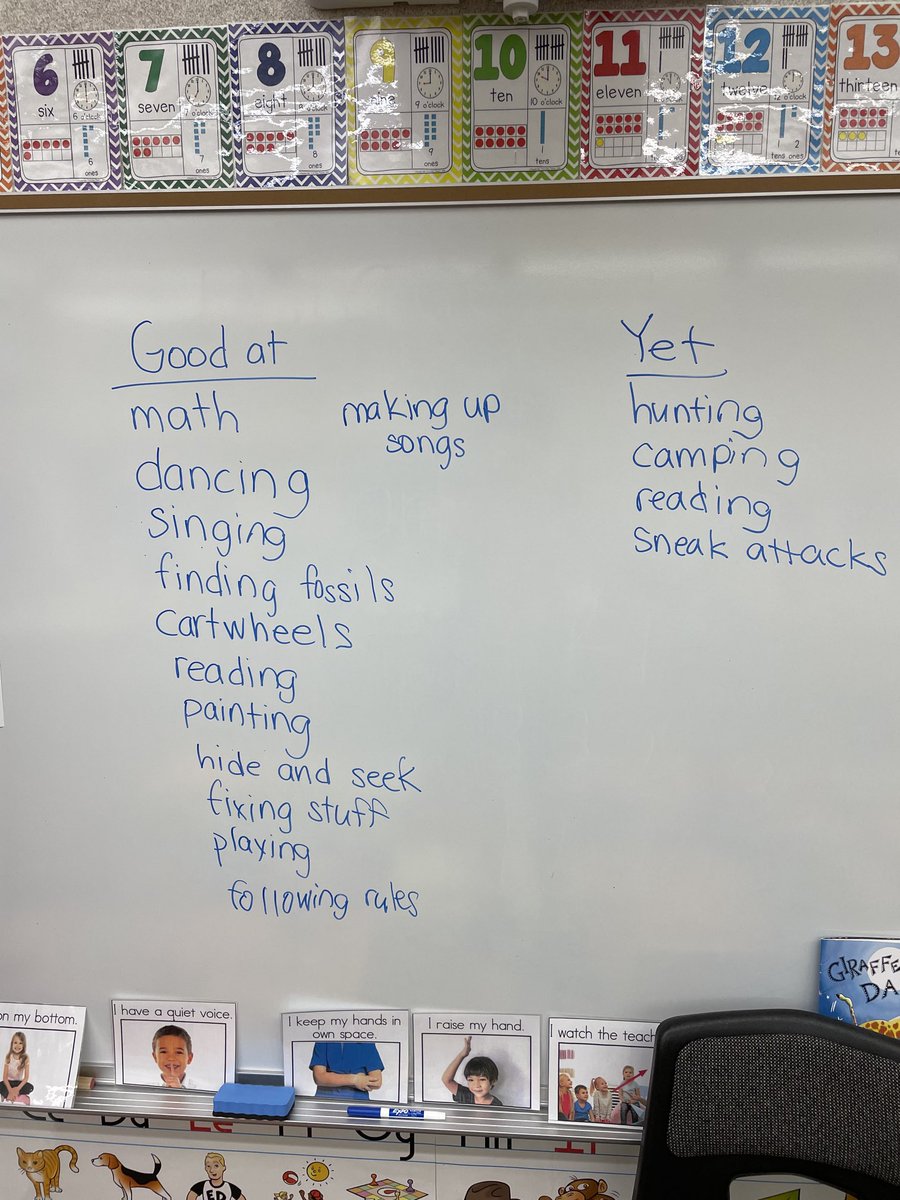 6
six
6 o'clock
6
ones
7
seven
7 o'clock
7
ones
8
eight
8 o'clock
8
ones
9
nine
9 o'clock
9
ones
10
ten
10 o'clock
tens
11
eleven
12
twelve
12 o'clock
2
tens ones
13
thirteen
Good at
math
dancing
singing
finding fossils
cartwheels
reading
painting
hide and seek
fixing stuff
playing
following rules
making up
songs
Yet
hunting
camping
reading
sneak attacks
GIRAFFE
on my bottom.
I have a quiet voice.
I keep my hands in
own space.
I raise my hand.
I watch the teach
EXPO
ED